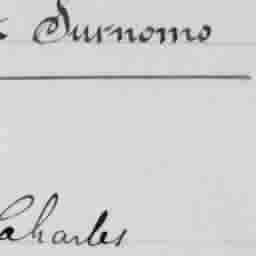 Surnoms
Charles